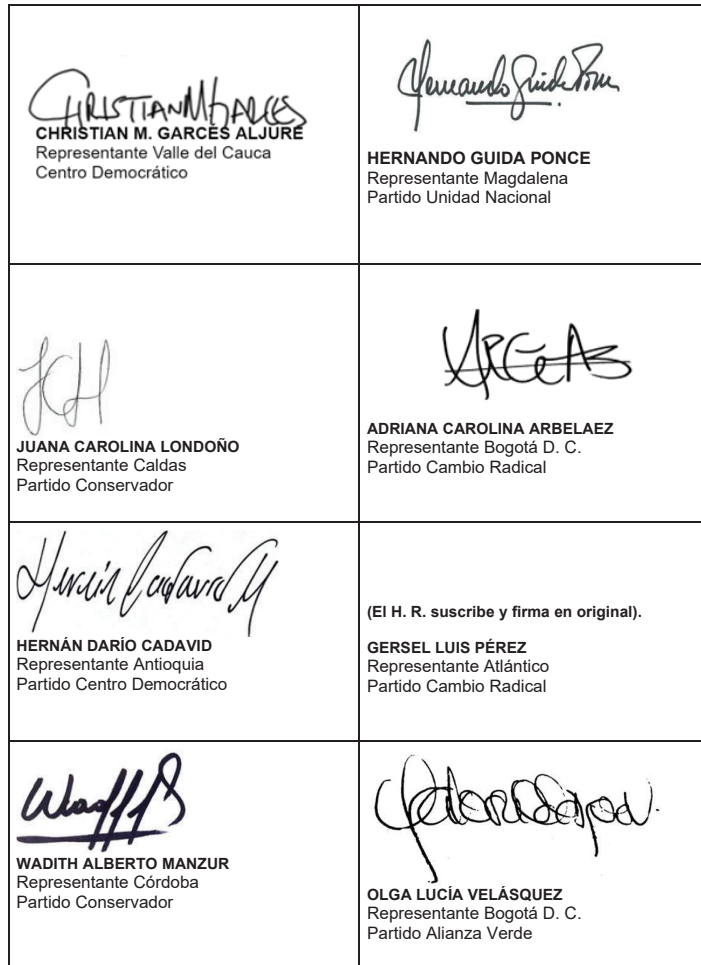 CHRISTIAN M GARCES
CHRISTIAN M. GARCÉS ALJURE
Representante Valle del Cauca
Centro Democrático
Hernando Guida Ponce
HERNANDO GUIDA PONCE
Representante Magdalena
Partido Unidad Nacional
JUANA CAROLINA LONDOÑO
Representante Caldas
Partido Conservador
ADRIANA CAROLINA ARBELAEZ
Representante Bogotá D. C.
Partido Cambio Radical
Hernán Cadavid
HERNÁN DARÍO CADAVID
Representante Antioquia
Partido Centro Democrático
(El H. R. suscribe y firma en original).
GERSEL LUIS PÉREZ
Representante Atlántico
Partido Cambio Radical
WADITH ALBERTO MANZUR
Representante Córdoba
Partido Conservador
OLGA LUCÍA VELÁSQUEZ
Representante Bogotá D. C.
Partido Alianza Verde